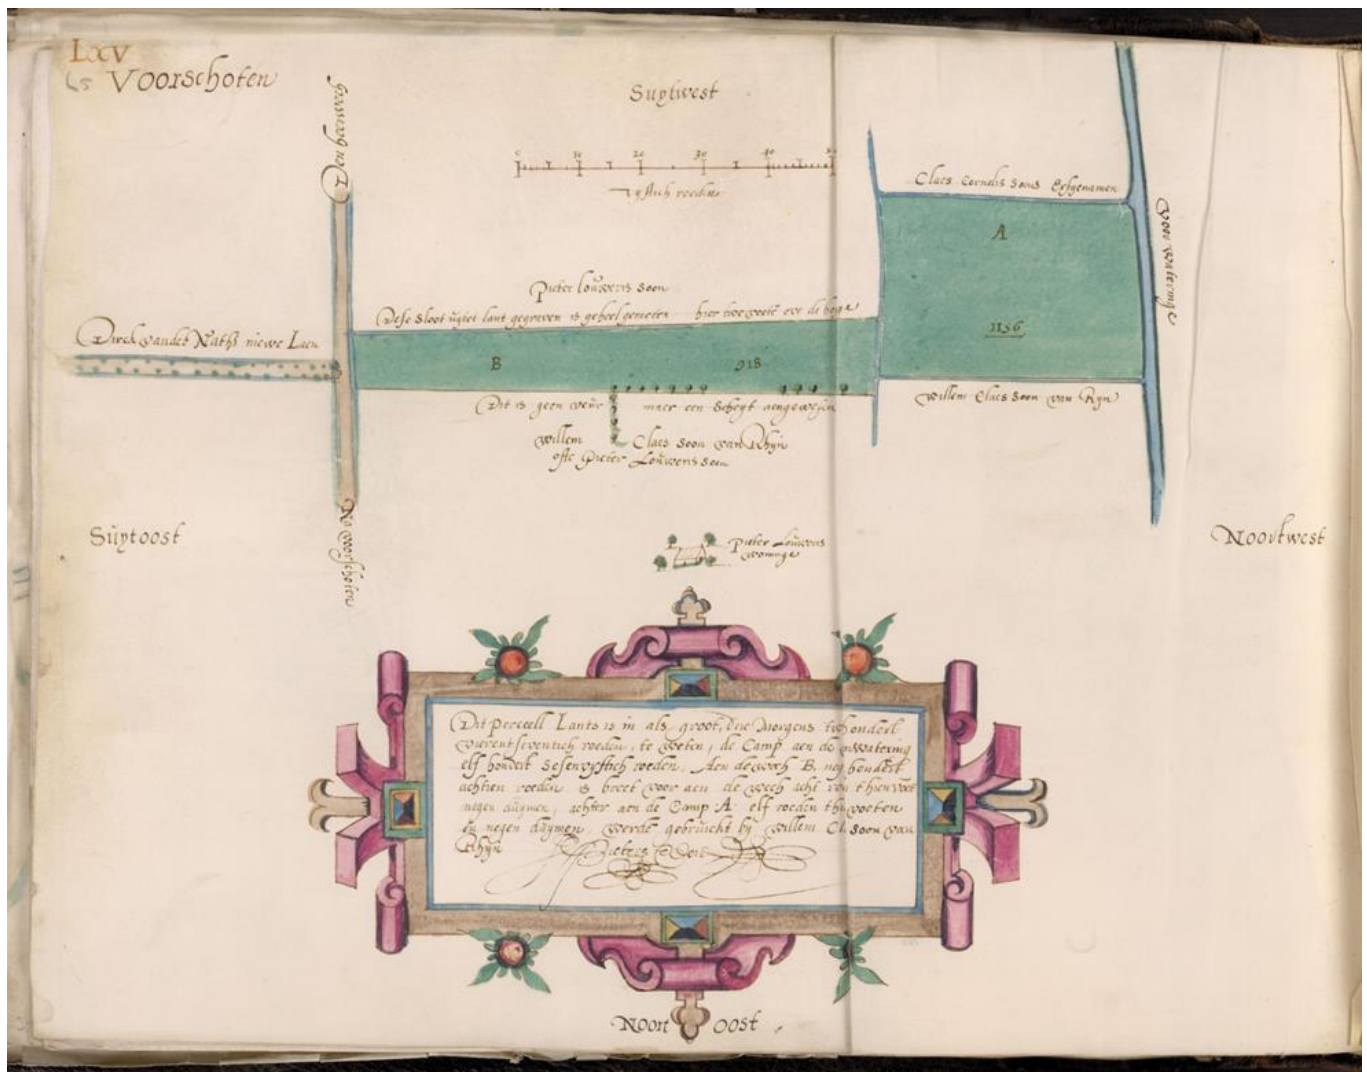 LXV
65 Voorschoten
Suytwest
0 10 20 30 40 50
vyftich roeden
Den herwech
Claes Cornelis soons Erfgenamen
A
1156
Voor wateringe
Pieter louweris soon
Dese sloot uytet lant gegraven is geheel gemeeten hier twe voete ove de hege
Dirck vander Naths niewe Laen
B 918
Dit is geen weur maer een scheyt aengewesen
willem Claes soon van Rhyn
ofte Pieter Louweris soon
willem Claes soon van Ryn
Suytoost
Na voorschoten
Noortwest
Pieter Louweris
woninge
Dit perceell Lants is in als groot, drie morgens twhondert
vierentseventich roeden, te weten, de Camp aen de wwatering
elf hondert sesenvyftich roeden, Aen de wech B, neg hendert
achtien roeden is breet voor aen de wech acht ron thien voet
negen duymen, achter aen de Camp A elf roeden thi voeten
en negen duymen, werde gebruickt by willem Cl. soon van
Rhyn
Pieters
Noort oost